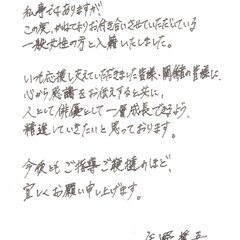 私事ではありますが
この度、かねてよりお付き合いさせていただいている
一般女性の方と入籍いたしました。
いつも応援し支えていただきました皆様・関係の皆様に、
心から感謝をお伝えすると共に、
人として俳優として一層成長できるよう、
精進していきたいと思っております。
今後ともご指導ご鞭撻のほど、
宜しくお願い申し上げます。